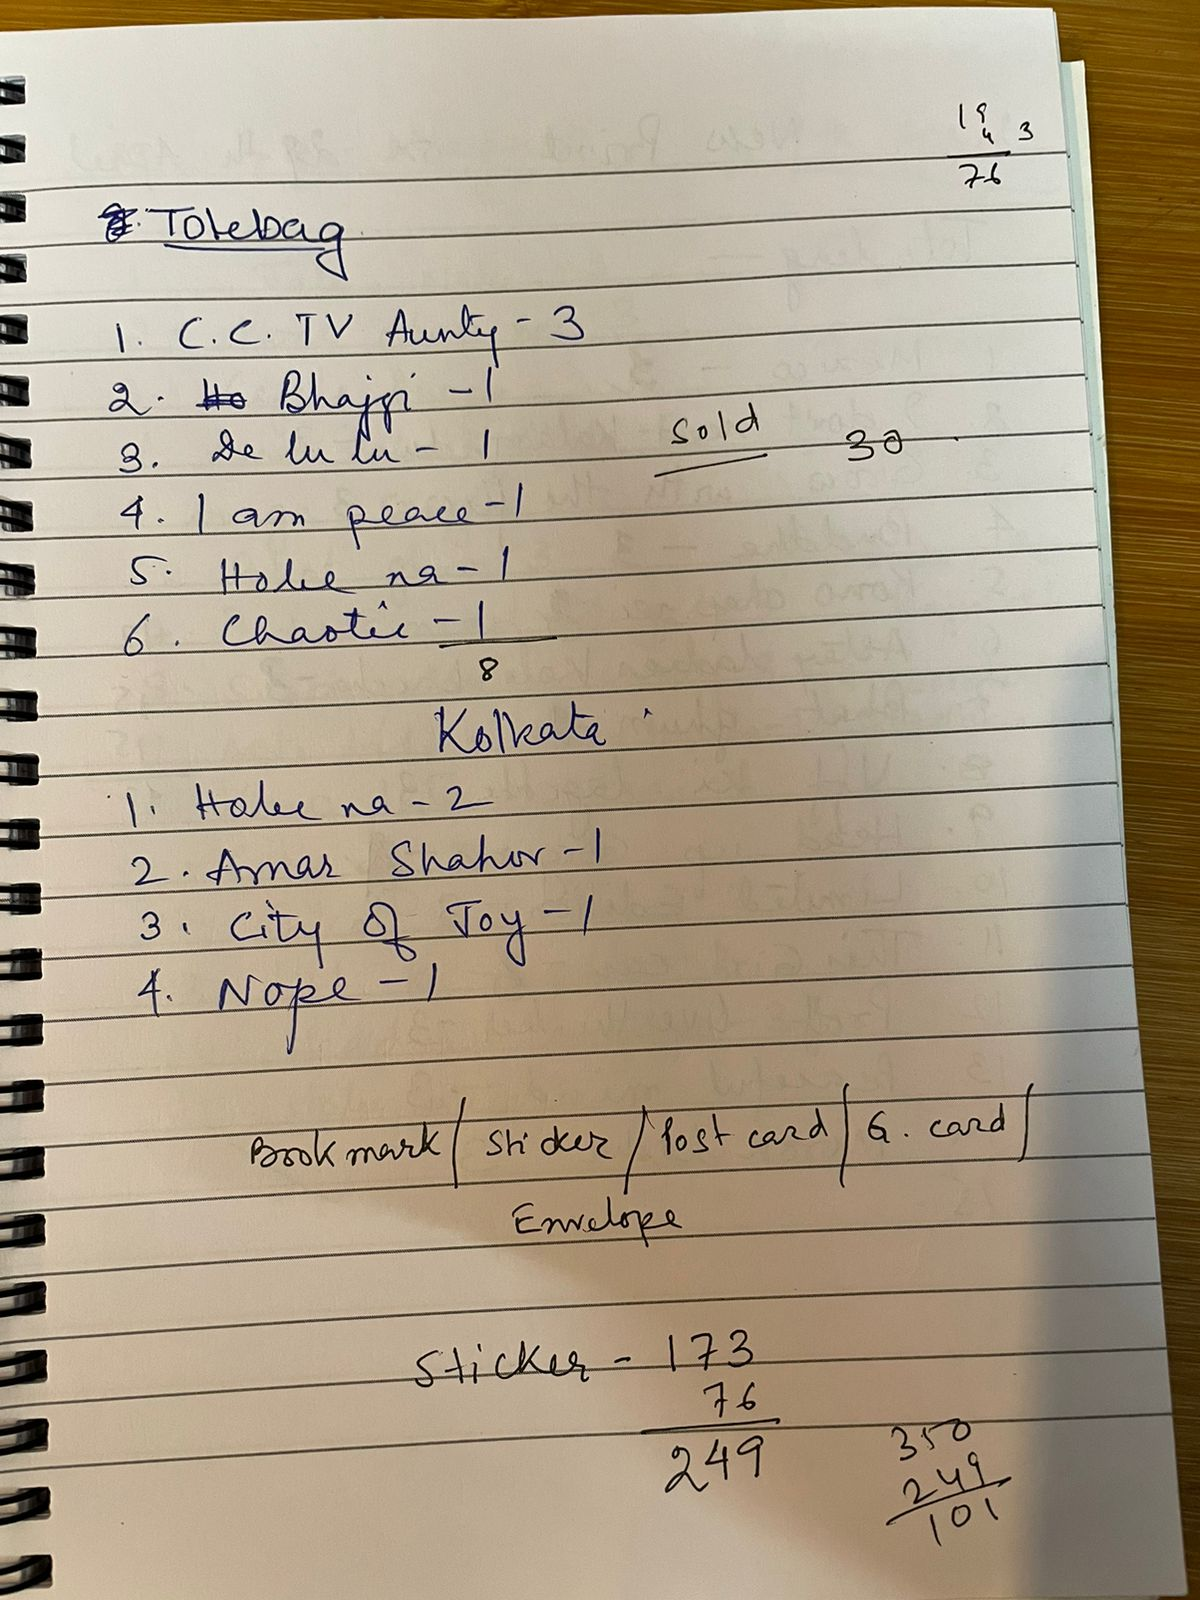 19
4 3
76
Totebag
1. C.C. TV Aunty - 3
2. Bhajpi - 1
3. De lu lu - 1
sold 30
4. I am peace - 1
5. Hobe na - 1
6. Chaotic - 1
8
Kolkata
1. Hobe na - 2
2. Amar Shahor - 1
3. City Of Joy - 1
4. Nope - 1
Bookmark / Sticker / Post card / G. card /
Envelope
Sticker - 173
76
249
350
249
101